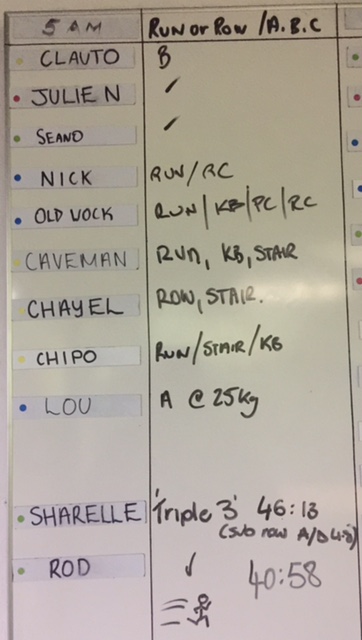 5 AM RUN or ROW / A.B.C
CLAUTO B
JULIEN
SEANO
NICK RUN/RC
OLD VOCK RUN/KB/PC/RC
CAVEMAN RUN, KB, STAIR
CHAYEL ROW, STAIR.
CHIPO RUN/STAIR/KB
LOU A @ 25kg
SHARELLE 'Triple 3' 46:13
(sub row
ROD 40:58